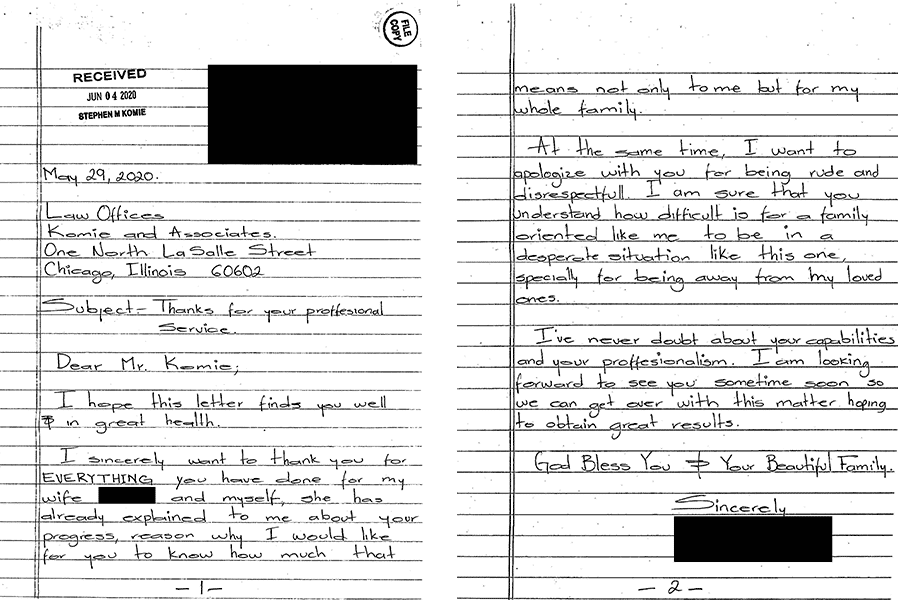 FILE
COPY
RECEIVED
JUN 04 2020
STEPHEN M KOMIE
May 29, 2020.
Law Offices
Komie and Associates.
One North LaSalle Street
Chicago, Illinois 60602
Subject- Thanks for your proffesional
Service.
Dear Mr. Komie;
I hope this letter finds you well
& in great health.
I sincerely want to thank you for
EVERYTHING you have done for my
wife and myself, she has
already explained to me about your
progress, reason why I would like
for you to know how much that
-1-
means not only to me but for my
whole family.
At the same time, I want to
apologize with you for being rude and
disrespectfull. I am sure that you
understand how difficult is for a family
oriented like me to be in a
desperate situation like this one,
specially for being away from my loved
ones.
I've never doubt about your capabilities
and your proffesionalism. I am looking
forward to see you sometime soon so
we can get over with this matter hoping
to obtain great results.
God Bless You & Your Beautiful Family.
Sincerely
-2-